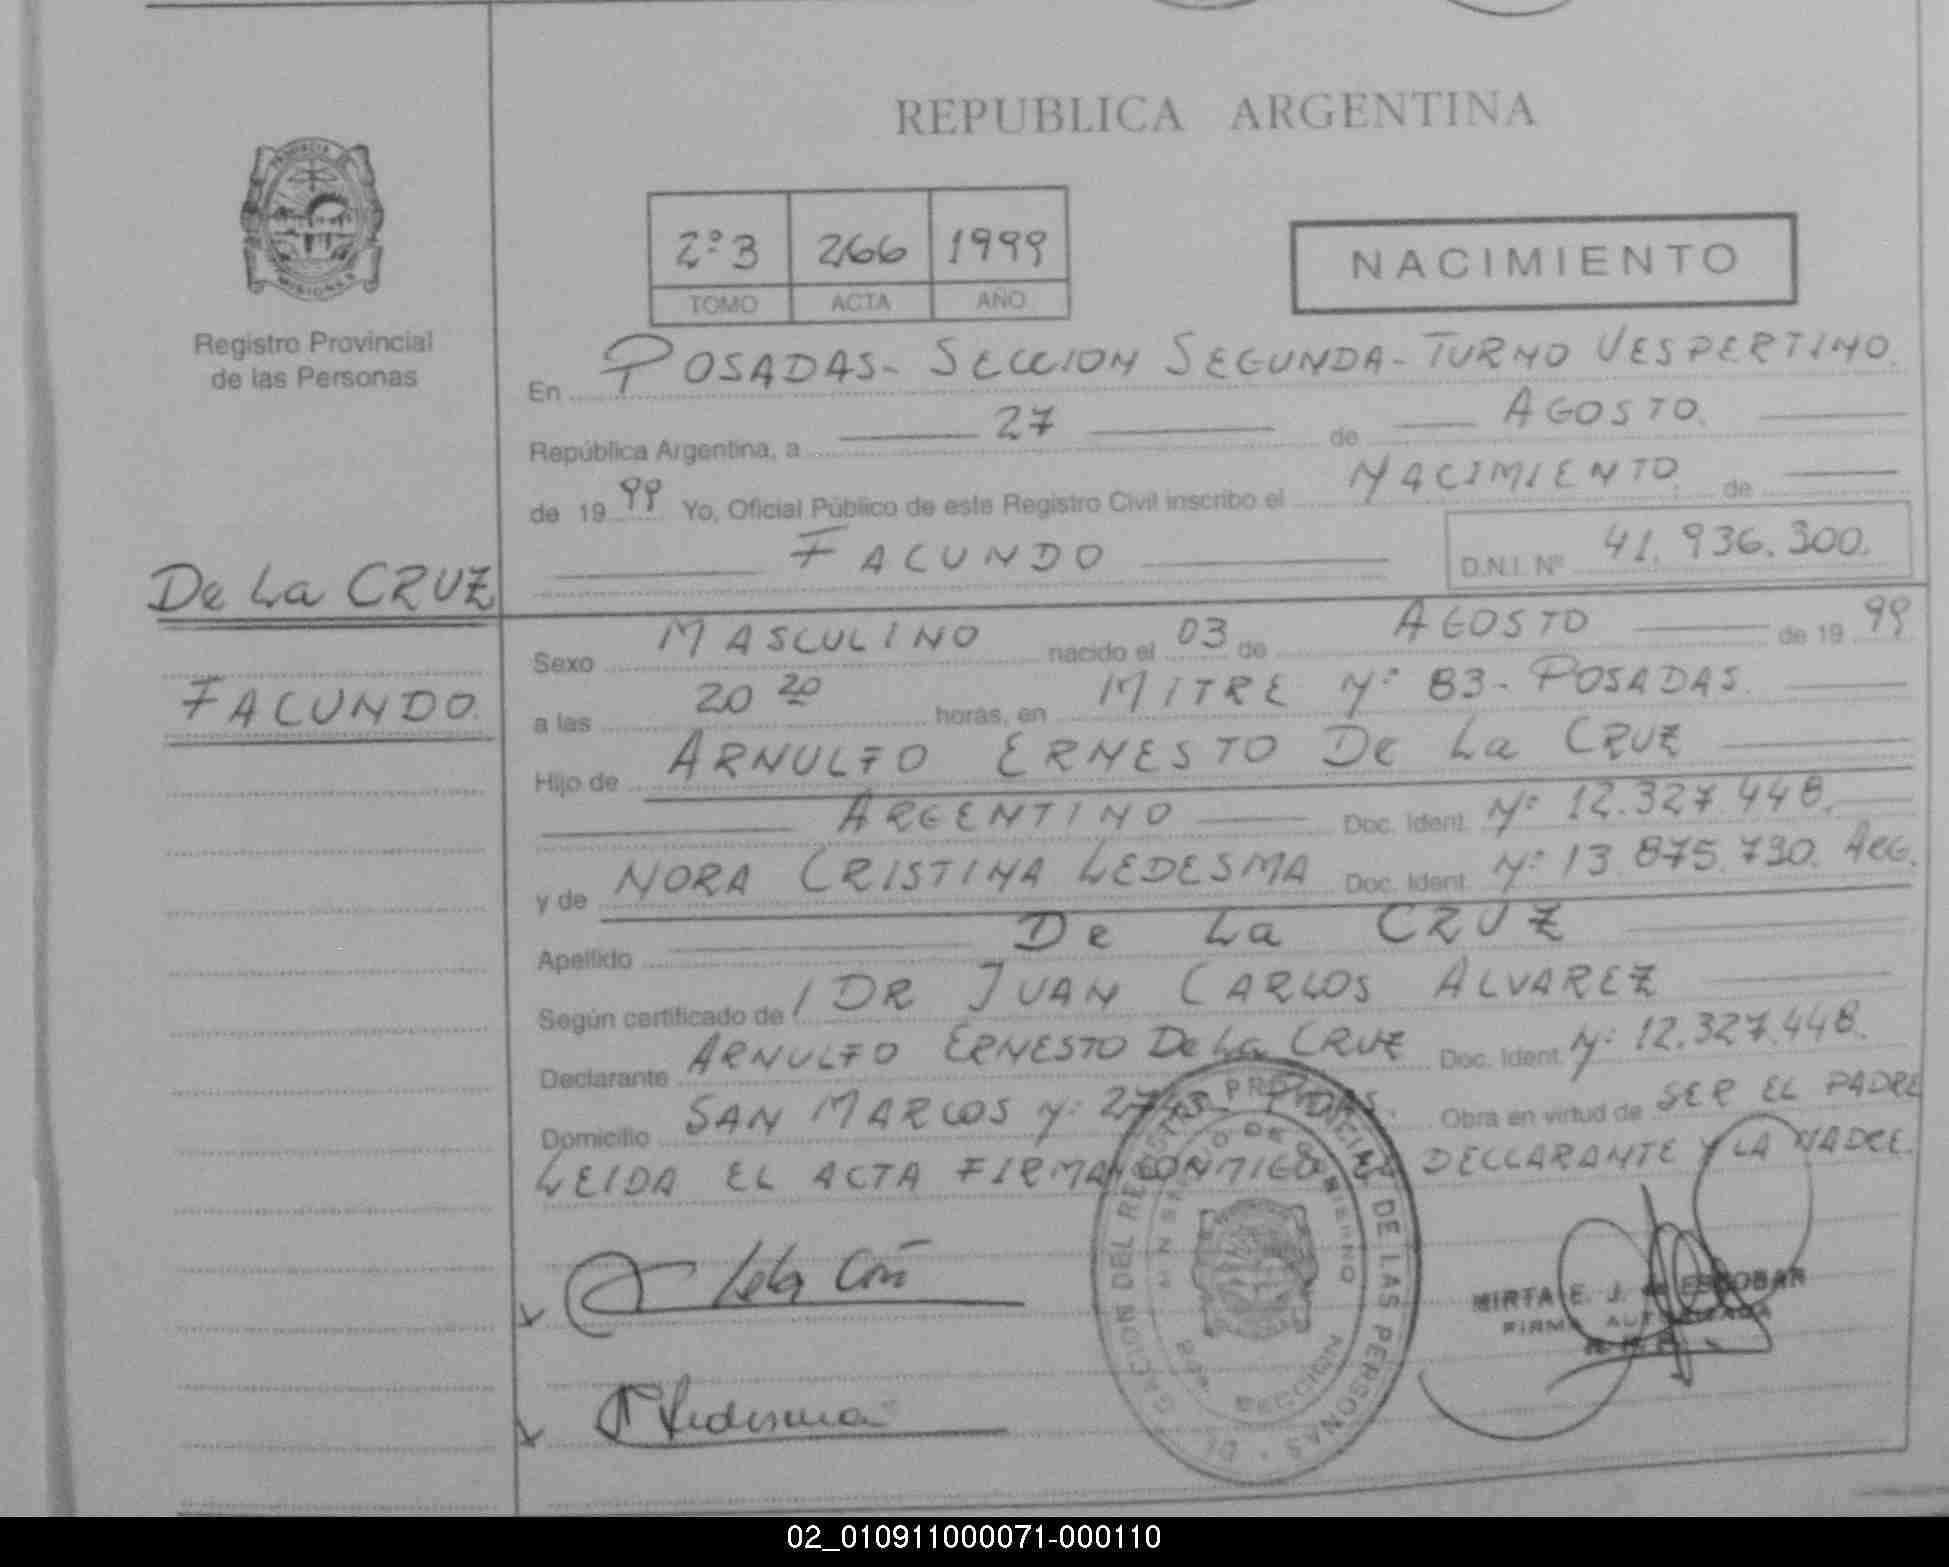 REPUBLICA ARGENTINA
PROVINCIA DE MISIONES
Registro Provincial
de las Personas
2º3 266 1999
TOMO ACTA AÑO
NACIMIENTO
En POSADAS- SECCION SEGUNDA- TURNO VESPERTINO.
República Argentina, a 27 de AGOSTO.
de 1999 Yo, Oficial Público de este Registro Civil inscribo el NACIMIENTO. de
FACUNDO D.N.I. Nº 41.936.300.
De La CRUZ
FACUNDO.
Sexo MASCULINO nacido el 03 de AGOSTO de 1999
a las 20 20 horas, en MITRE Nº 83- POSADAS.
Hijo de ARNULFO ERNESTO De La CRUZ
ARGENTINO Doc. Ident. Nº 12.327.448.
y de NORA CRISTINA LEDESMA Doc. Ident. Nº 13.875.730. ARG.
Apellido De La CRUZ
Según certificado de / DR JUAN CARLOS ALVAREZ
Declarante ARNULFO ERNESTO De La CRUZ Doc. Ident. Nº 12.327.448.
Domicilio SAN MARCOS Nº Obra en virtud de SER EL PADRE
LEIDA EL ACTA FIRMA CONMIGO EL DECLARANTE Y LA MADRE.
DELEGACION DEL REGISTRO PROVINCIAL DE LAS PERSONAS
MINISTERIO DE GOBIERNO
SECCION
MIRTA E. J. ESCOBAR
FIRMA AUTORIZADA
Ledesma
02_010911000071-000110